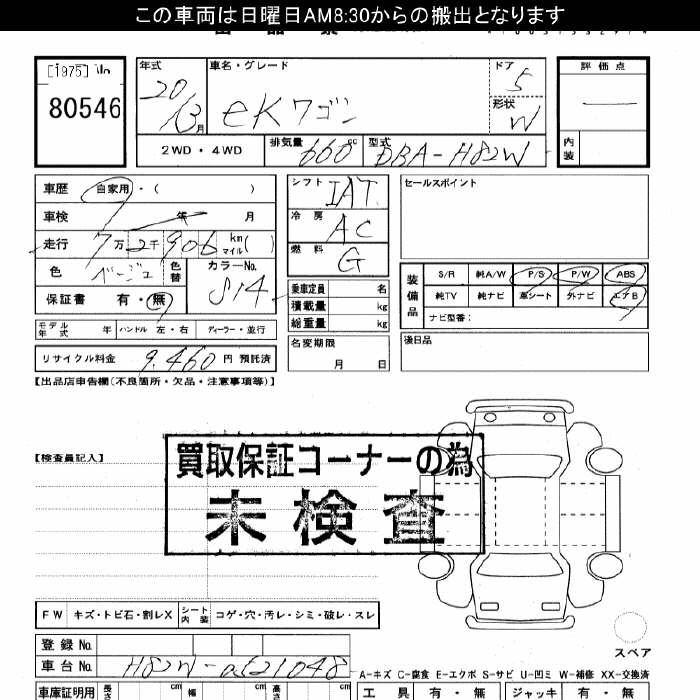 この車両は日曜日AM8:30からの搬出となります
[1975]
80546
年式 車名・グレード ドア 評価点
20/3月 eKワゴン 5
形状 W
2WD・4WD 排気量 660cc 型式 DBA-H82W 内装
車歴 自家用・( ) シフト IAT セールスポイント
車検 年 月 冷房 AC
走行 7万2千906 km マイル( ) 燃料 G
色 ベージュ 色替 カラーNo. S14
装備品 S/R 純A/W P/S P/W ABS
乗車定員 名 純TV 純ナビ 革シート 外ナビ エアB
保証書 有・無 積載量 kg ナビ型番:
総重量 kg
モデル年式 年 ハンドル 左・右 ディーラー・並行 名変期限 月 日 後日品
リサイクル料金 9,460円 預託済
【出品店申告欄(不良箇所・欠品・注意事項等)】
【検査員記入】
買取保証コーナーの為
未検査
FW キズ・トビ石・割レX シート内装 コゲ・穴・汚レ・シミ・破レ・スレ
スペア
登録No.
車台No. H82W-
A-キズ C-腐食 E-エクボ S-サビ U-凹ミ W-補修 XX-交換済
車庫証明用 長さ cm 幅 cm 高さ cm 工具 有・無 ジャッキ 有・無